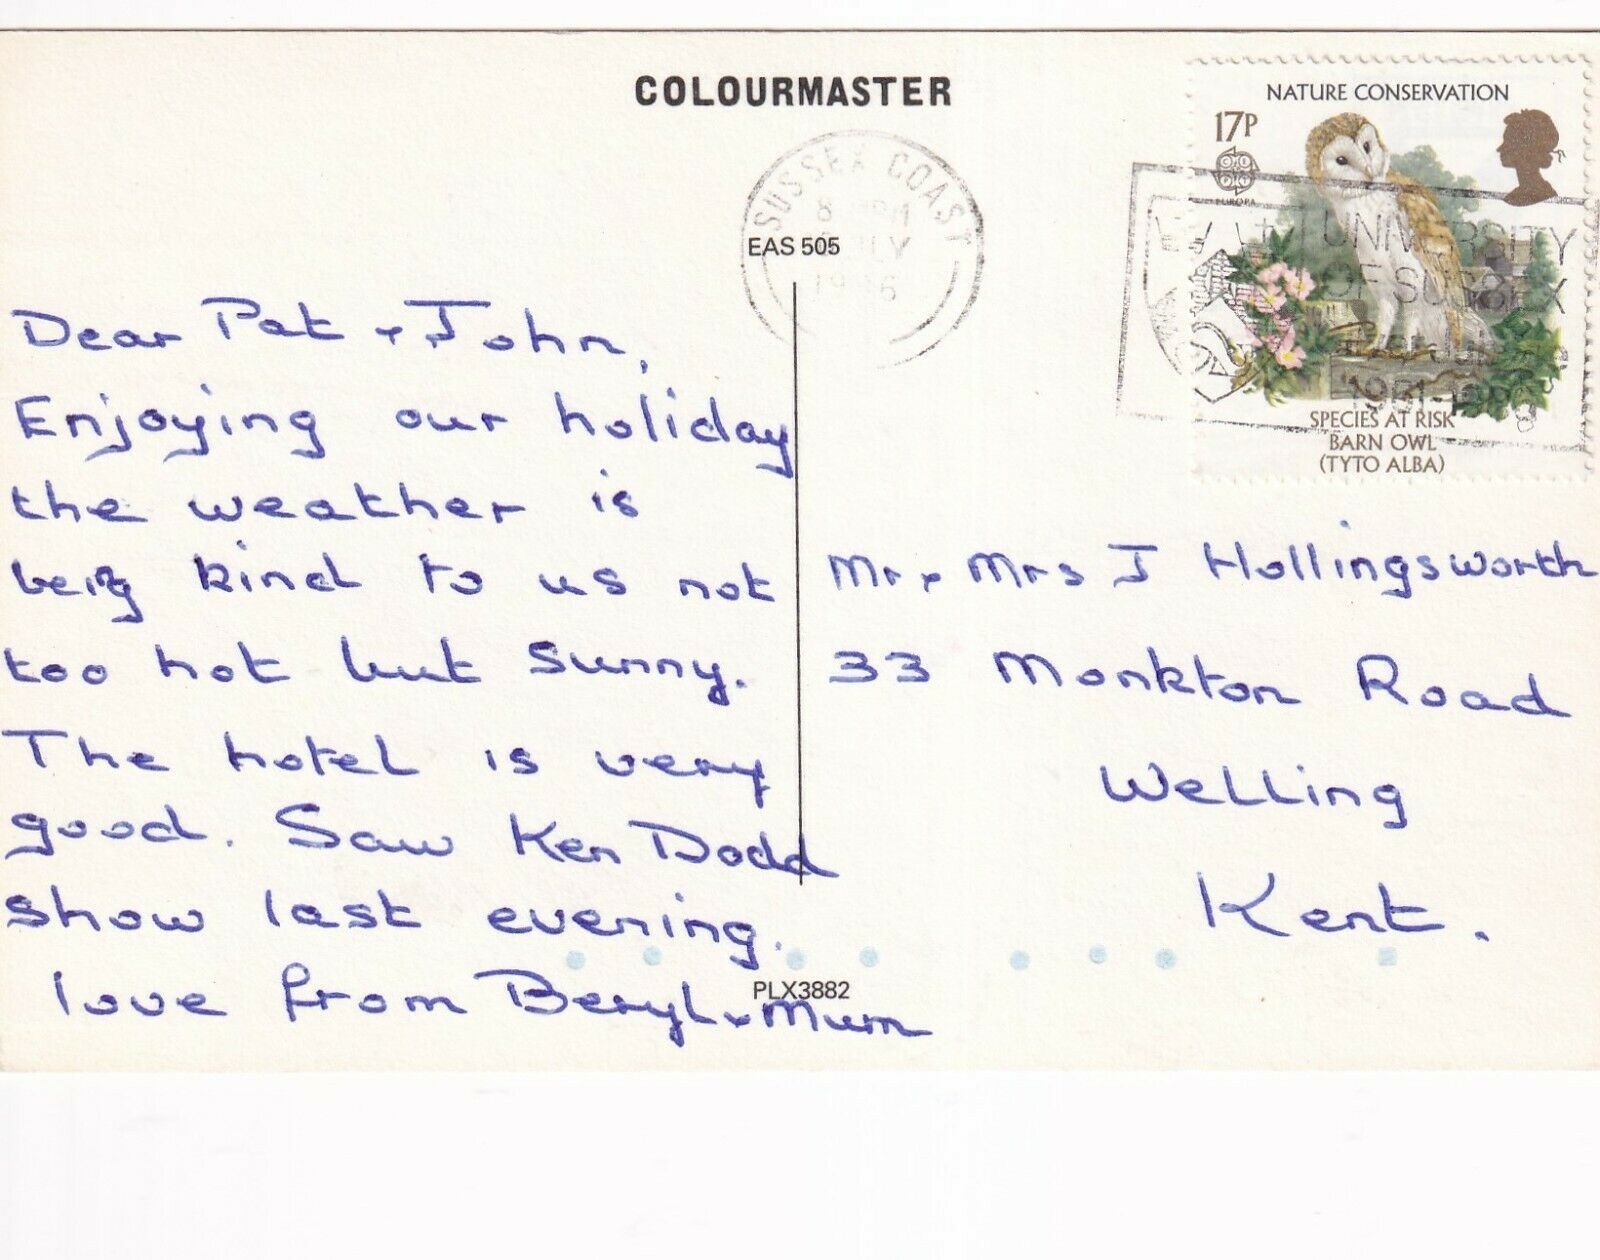 COLOURMASTER
NATURE CONSERVATION
17P
EUROPA
SPECIES AT RISK
BARN OWL
(TYTO ALBA)
SUSSEX COAST
8 PM
1986
UNIVERSITY
OF SUSSEX
EAS 505
Dear Pat + John,
Enjoying our holiday
the weather is
being kind to us not
too hot but sunny.
The hotel is very
good. Saw Ken Dodd
show last evening.
love from Beryl + Mum
Mr + Mrs J Hollingsworth
33 Monkton Road
Welling
Kent.
PLX3882